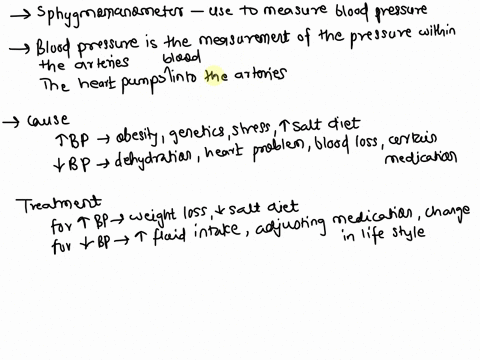 → Sphygmomanometer — use to measure blood pressure
→ Blood pressure is the measurement of the pressure within
the arteries
The heart pumps ^blood into the arteries
→ cause
↑BP → obesity, genetics, stress, ↑ salt diet
↓BP → dehydration, heart problem, blood loss, certain
medication
Treatment
for ↑ BP → weight loss, ↓ salt diet
for ↓ BP → ↑ fluid intake, adjusting medication, change
in life style